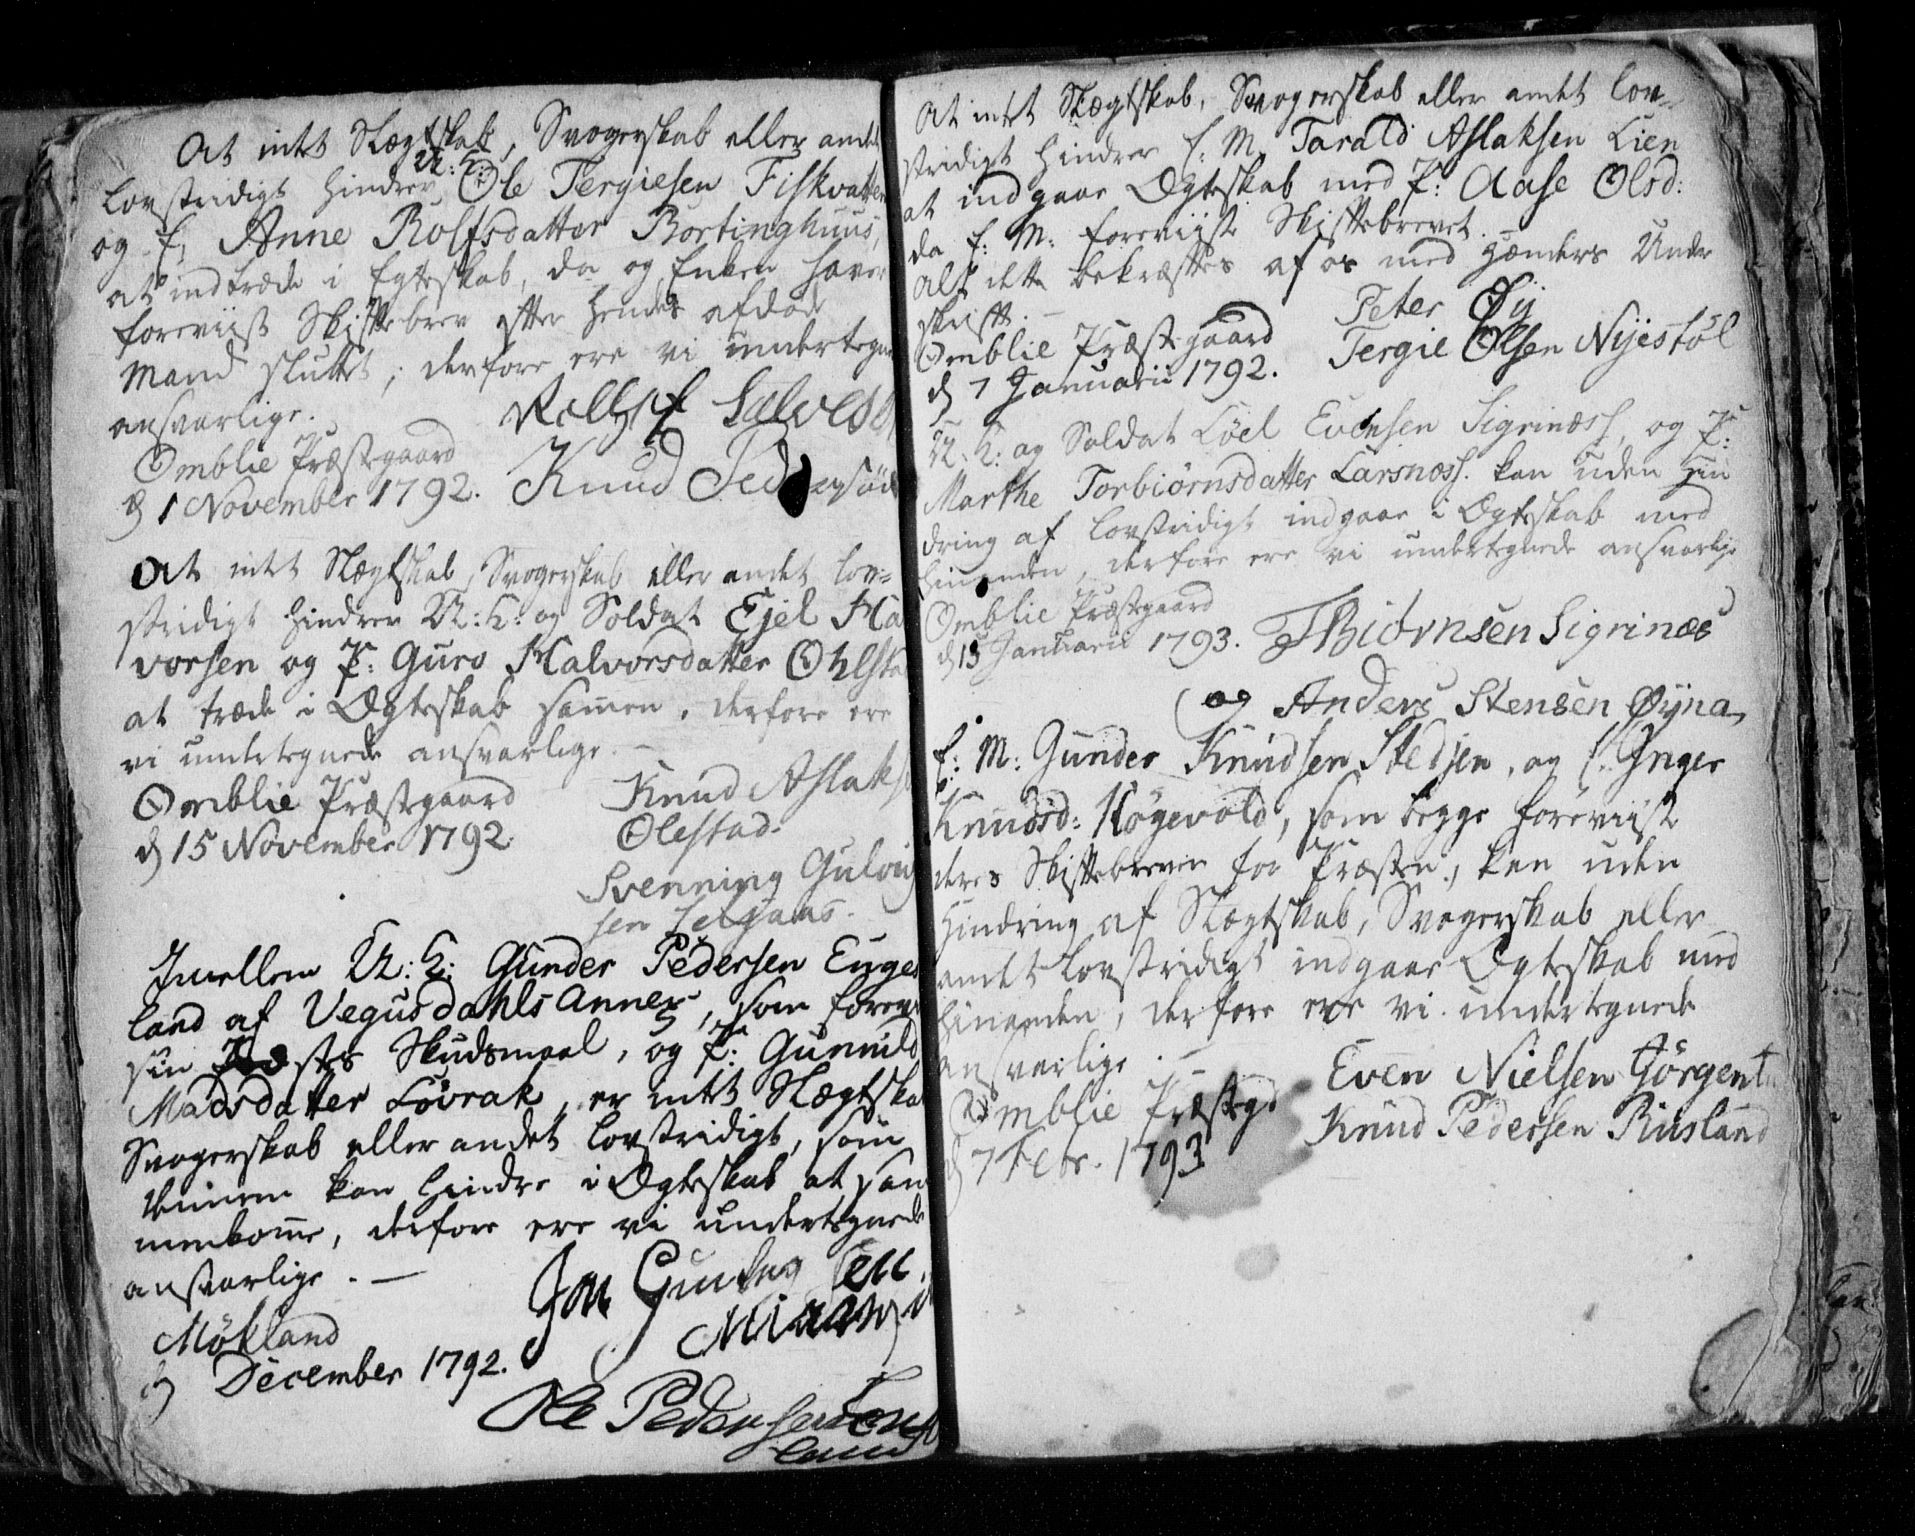 At intet Slægtskab, Svogerskab eller andet
lovstridigt hindrer U: K: Ole Tergiesen Fiskvatten
og E: Anne Rolfsdatter Bortinghuus,
at indtræde i Egteskab, da og Enken haver
foreviist Skiftebrev efter hendes afdøde
Mand sluttet; derfore ere vi undertegnede
ansvarlige.
Omblie Præstegaard
d 1 November 1792.
Knud
At intet Slægtskab, Svogerskab eller andet lov-
stridigt hindrer U: K: og Soldat Ejel Hal
vorsen og P: Guro Halvorsdatter Ohlsta
at træde i Ægteskab sammen, derfore ere
vi undertegnede ansvarlige. —
Omblie Præstegaard
d 15 November 1792.
Knud Aslaks
Olestad.
Svenning Gulovs
sen
Imellem U: K: Gunder Pedersen Euges
land af Vegusdahls Annex, som forev
sin Præstes Skudsmaal, og P: Gunnild
Madsdatter Løvrak, er intet Slægtskab
Svogerskab eller andet lovstridigt, som
kan hindre i Ægteskab at sam
menkomme, derfore ere vi undertegnede
ansvarlige. —
Møkland
d December 1792.
Ole Pedersen
At intet Slægtskab, Svogerskab eller andet lov-
stridigt hindrer E: M: Tarald Aslaksen Lien
at indgaae Ægteskab med P: Aase Olsd:
da E: M: foreviiste Skiftebrevet.
alt dette bekræftes af os med Hænders Under
skrift. —
Omblie Præstegaard
d 7 Januarii 1792.
Peter Øy
Tergie Olsen Nyestøl
U: K: og Soldat Löel Evensen Sigrinæss, og P:
Marthe Torbiørnsdatter Larsnæss. kan uden Hin
dring af lovstridigt indgaae i Ægteskab med
hinanden, derfore ere vi undertegnede ansvarlige
Omblie Præstegaard
d 15 Januarii 1793.
TBiørnsen Sigrinæs
og Anders Stensen Øyna,
E: M: Gunder Knudsen Stedjen, og E: Inger
Knudsd: Høgevold, som begge foreviiste
deres Skiftebreve for Præsten, kan uden
Hindring af Slægtskab, Svogerskab eller
andet lovstridigt indgaae Ægteskab med
hinanden, derfore ere vi undertegnede
ansvarlige. —
Omblie Præstegd
d 7 Febr. 1793
Even Nielsen Gørgent
Knud Pedersen Risland